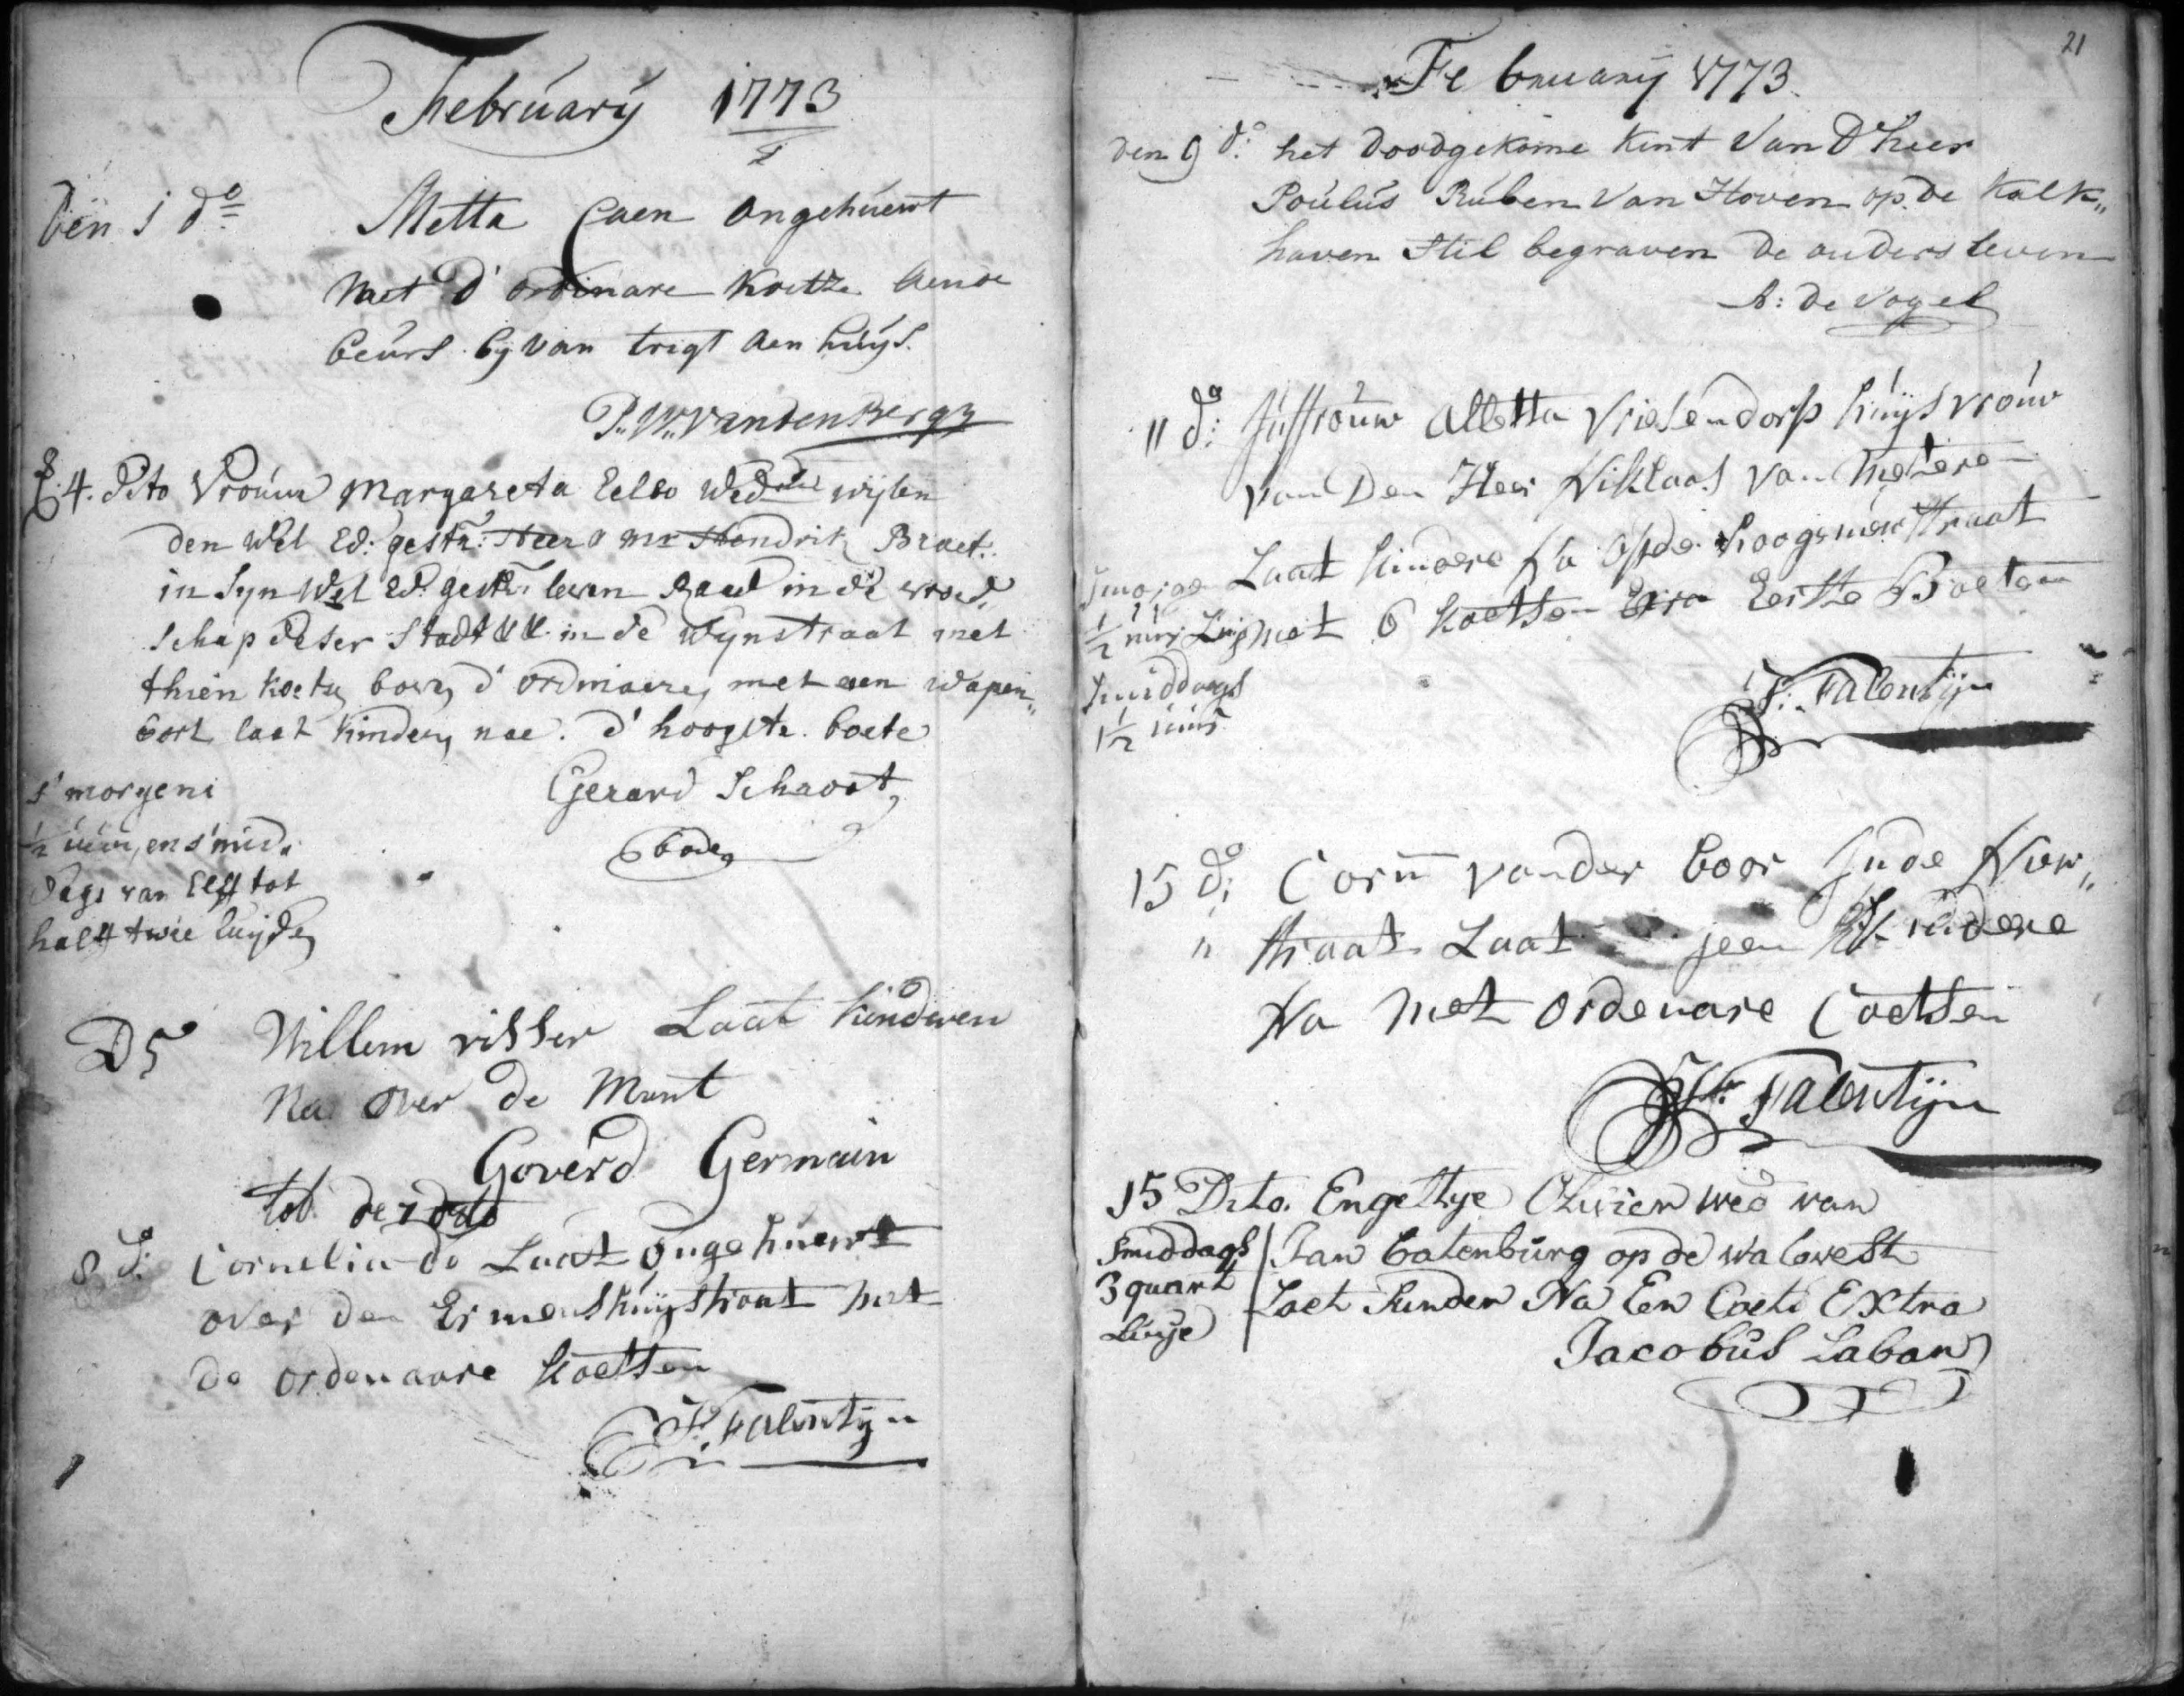 February 1773
Den 1 do Metta Caen ongehuewt
met d' ordinare koetze aen de
beurs bij van trigt aen huijs.
P.W. VandenBergh
4. Dito Vrouw Margareta Eelbo Wed wijlen
den Wel Ed: gestr: Heer Mr Hendrik Braet.
in Syn Wel Ed: gestr: leven Raad in de vroed,
schap deser Stadt &c &c in de Wijnstraat met
thien koetsen boven d' ordinaire, met een wapen„
bort laat kinderen nae. d' hoogste boete
Gerard Schaost
bode
s' morgens
1/2 uur, en s'mid.
dags van Elff tot
halff twee luijde
D 5 Willem visser Laat kinderen
Na over de Munt
Goverd Germain
tot de
8 d: Cornelia de Laat Ongehuewt
over den Ermenshuijs straat met
de ordenaare koetsen
F: Falentijn
21
February 1773.
den 9 do: het doodgekome kint Van D heer
Poulus Ruben Van Hoven op de Kalk„
haven Stil begraven de ouders leven
A: de Vogel
11 do: Juffrouw Alletta Vriesendorp huijsvrouw
van Den Heer Niklaas Van Metere
Laat kindere Na Op de hooge nieuwstraat
met 6 koetsen Exra Eerste Boeten
Smorge
1/2 uur Luij
Smiddags
1 1/2 uur
F: Falentijn
15 d: Corn vander boor In de Niew„
„ straat Laat geen Kindere
Na Met ordenare Coetsen
F: Falentijn
15 Dito. Engeltye Olivier wed van
Jan Batenburg op de walevest
Laet kinder Na Een Coets Extra
Smiddags
3 quart
Luije
Jacobus Laban